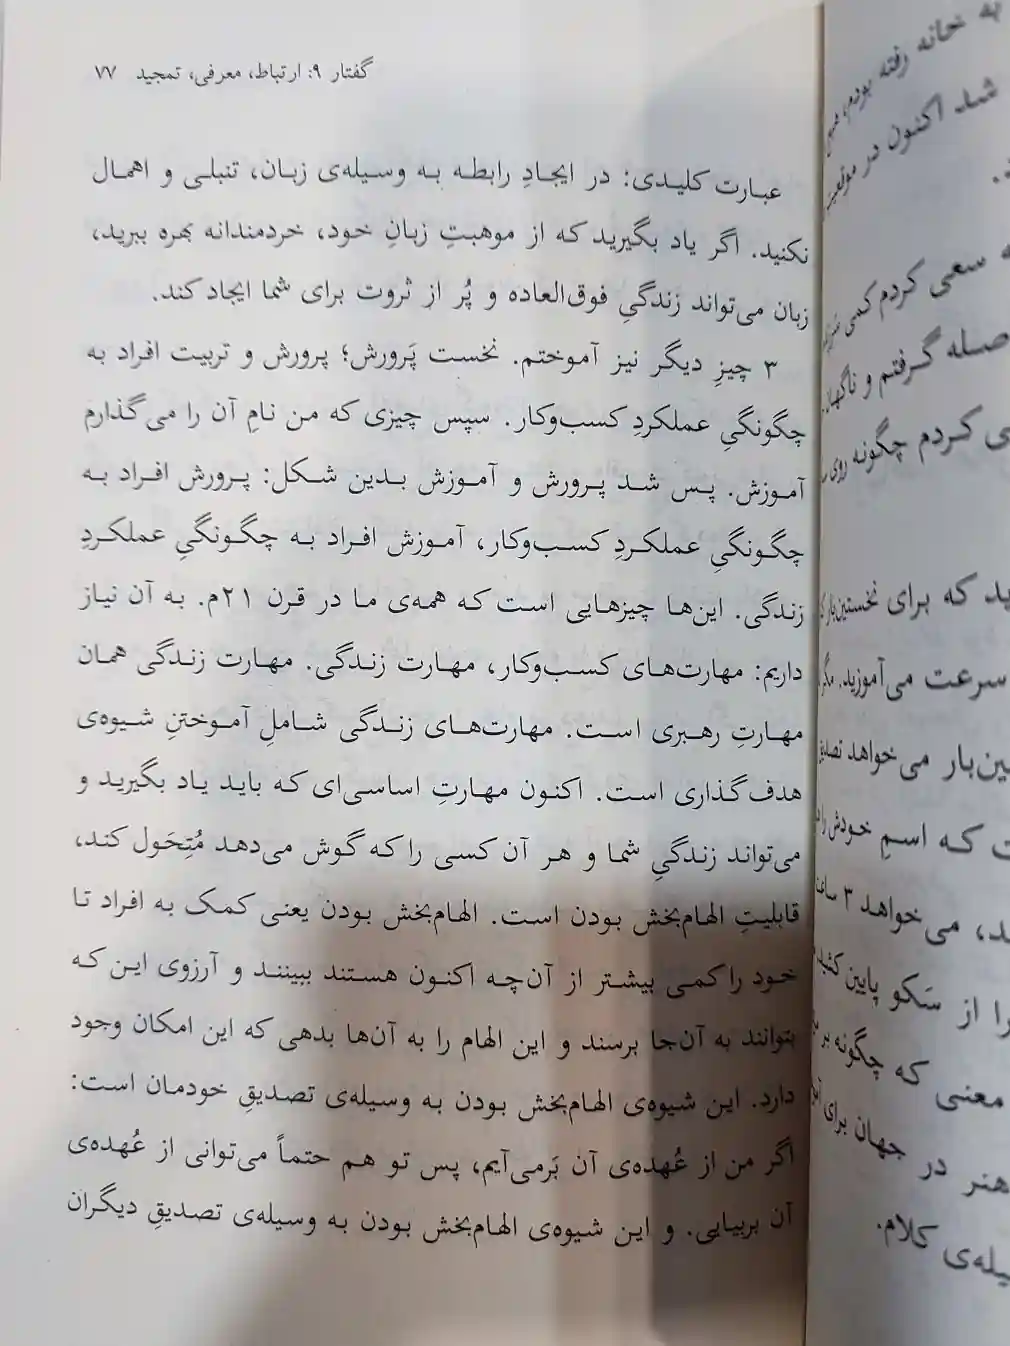 گفتار ۹: ارتباط، معرفی، تمجید ۷۷
عبارت کلیدی: در ایجادِ رابطه به وسیله‌ی زبان، تنبلی و اهمال
نکنید. اگر یاد بگیرید که از موهبتِ زبانِ خود، خردمندانه بهره ببرید،
زبان می‌تواند زندگیِ فوق‌العاده و پُر از ثروت برای شما ایجاد کند.
۳ چیزِ دیگر نیز آموختم. نخست پَرورش؛ پرورش و تربیت افراد به
چگونگیِ عملکردِ کسب‌وکار. سپس چیزی که من نامِ آن را می‌گذارم
آموزش. پس شد پرورش و آموزش بدین شکل: پرورش افراد به
چگونگیِ عملکردِ کسب‌وکار، آموزش افراد به چگونگیِ عملکردِ
زندگی. این‌ها چیزهایی است که همه‌ی ما در قرن ۲۱م. به آن نیاز
داریم: مهارت‌های کسب‌وکار، مهارت زندگی. مهارت زندگی همان
مهارتِ رهبری است. مهارت‌های زندگی شاملِ آموختنِ شیوه‌ی
هدف‌گذاری است. اکنون مهارتِ اساسی‌ای که باید یاد بگیرید و
می‌تواند زندگیِ شما و هر آن کسی را که گوش می‌دهد مُتِحَول کند،
قابلیتِ الهام‌بخش بودن است. الهام‌بخش بودن یعنی کمک به افراد تا
خود را کمی بیشتر از آن‌چه اکنون هستند ببینند و آرزوی این که
بتوانند به آن‌جا برسند و این الهام را به آن‌ها بدهی که این امکان وجود
دارد. این شیوه‌ی الهام‌بخش بودن به وسیله‌ی تصدیقِ خودمان است:
اگر من از عُهده‌ی آن بَرمی‌آیم، پس تو هم حتماً می‌توانی از عُهده‌ی
آن بربیایی. و این شیوه‌ی الهام‌بخش بودن به وسیله‌ی تصدیقِ دیگران
به خانه رفته بودم،
شد اکنون در
سعی کردم کمی
گرفتم و
کردم چگونه روی
که برای نخستین‌بار
سرعت می‌آموزید.
می‌خواهد
که اسمِ خودش را
می‌خواهد ۳
را از سَکو پایین
معنی که چگونه بر
هنر در جهان برای
کلام.